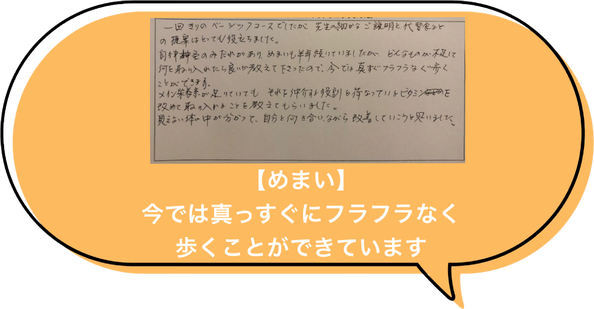 一回きりのベーシックコースでしたが、先生の細かなご説明と代替食など
の提案はとても役立ちました。
自律神経のみだれがあり、めまいも半年続いていましたが、どんなものが不足して
何を取り入れたら良いか教えて下さったので、今では真すぐフラフラなく歩く
ことができます。
メイン栄養素が足りていても それを仲介する役割を荷なっているビタミンを
改めて取り入れることを教えてもらいました。
見えない体の中が分かって、自分と向き合いながら改善していこうと思いました。
【めまい】
今では真っすぐにフラフラなく
歩くことができています